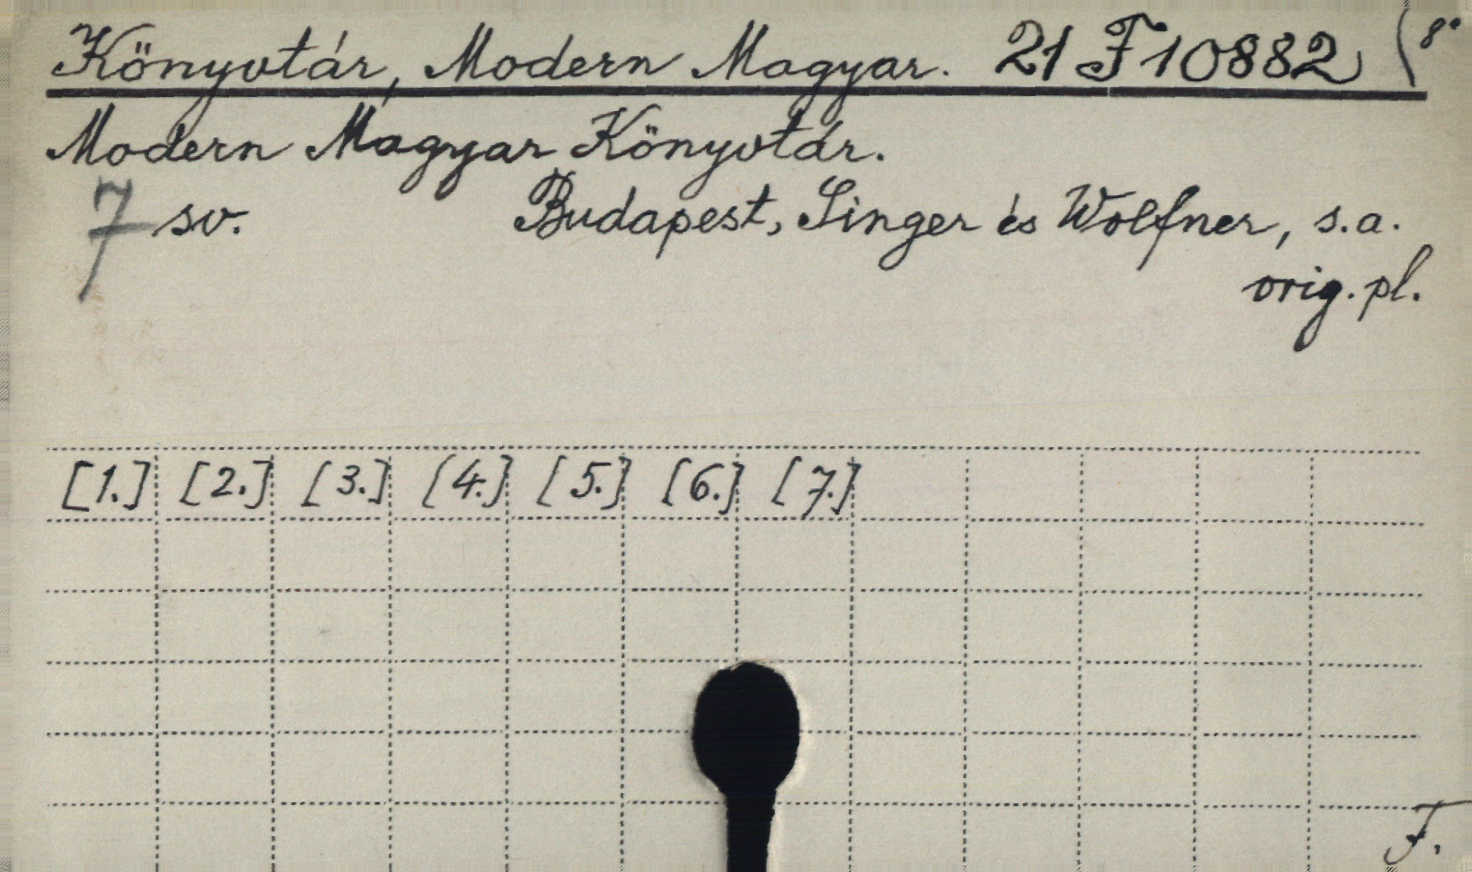 Könyvtár, Modern Magyar. 21 F 10882 (8°
Modern Magyar Könyvtár.
7 sv. Budapest, Singer és Wolfner, s.a.
orig. pl.
[1.] [2.] [3.] [4.] [5.] [6.] [7.]
F.